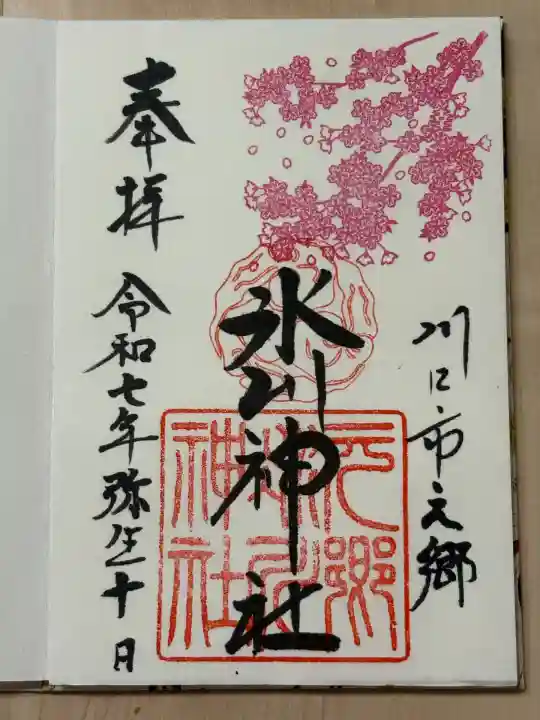 川口市元郷
氷川神社
元郷
氷川
神社
奉拝
令和七年弥生十日